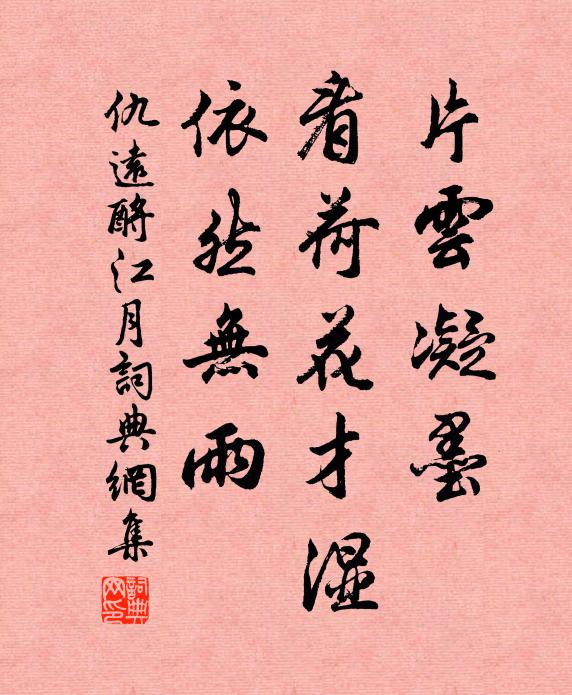 片雲凝墨
看荷花才湿
依然無雨
仇遠酹江月詞典網集
詞典网印